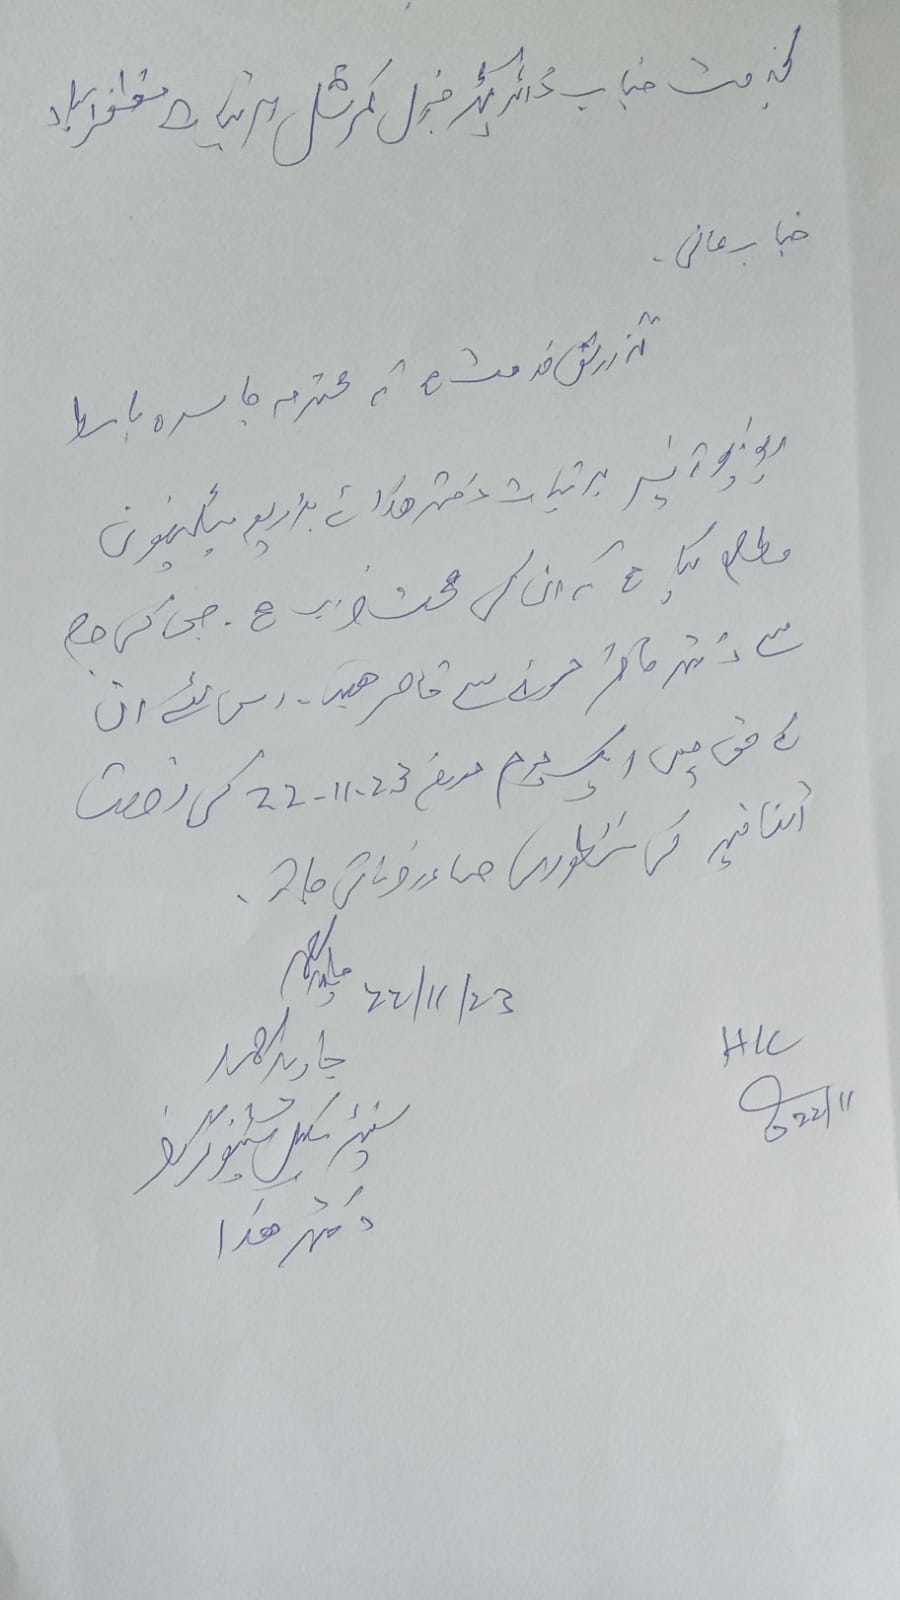 بخدمت جناب ڈائریکٹر جنرل کمرشل برقیات مظفرآباد
جناب عالی۔
گزارش خدمت ہے کہ محترمہ باسط
ریونیو آفیسر برقیات دفتر ھذا نے بذریعہ ٹیلیفون
مطلع کیا ہے کہ ان کی صحت خراب ہے۔ جس کی وجہ
سے دفتر حاضر ہونے سے قاصر ھیں۔ اس لئے ان
کے حق میں ایک یوم مورخہ 22-11-23 کی رخصت
اتفاقیہ کی منظوری صادر فرمائی جائے۔
22/11/23
جاوید احمد
سینئر سکیل سٹینوگرافر
دفتر ھذا
22/11